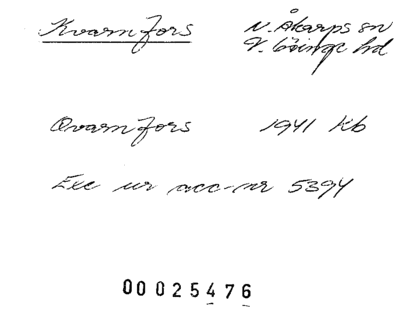 Kvarnfors N. Åkarps sn
V. Göinge hd
Qvarnfors 1941 Kb
Exc ur acc-nr 5394
00025476